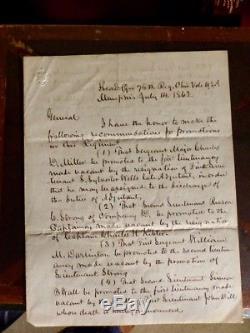 Head Qrs 76th Reg. Ohio Vols U.S.A.
Memphis July 1st 1862
General
I have the honor to make the
following recommendations for promotions
in this Regiment
(1) That Sergeant Major Charles
D. Miller be promoted to the first Lieutenancy
made vacant by the resignation of Lieutenant
Sylvester Wells late Adjutant, in order
that he may be assigned to the discharge of
the duties of Adjutant.
(2) That Second Lieutenant
C. Strong of Company be promoted to the
Captaincy made vacant by the resignation
of Captain Charles H. Kibler
(3) That First Sergeant William
M. Darlinton be promoted to the second Lieuten
ancy made vacant by the promotion of
Lieutenant Strong
(4) That second Lieutenant Simeon
B. Wall be promoted to the first Lieutenancy made
vacant by the Lieutenant John Hill,
whose death is much lamented.